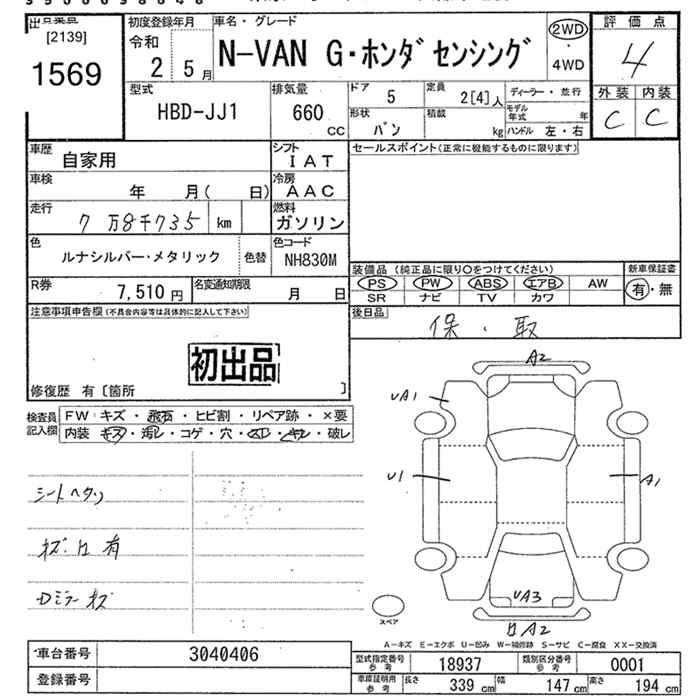 出品票点
[2139]
1569
初度登録年月
令和
2 5月
車名・グレード
N-VAN G・ホンダセンシング
2WD
・
4WD
評価点
4
外装 内装
C C
型式
HBD-JJ1
排気量
660
CC
ドア 5
定員 2[4]人
形状 バン
積載 kg
ディーラー・並行
モデル年式 年
ハンドル 左・右
車歴 自家用
シフト IAT
セールスポイント(正常に機能するものに限ります)
車検 年 月( 日)
冷房 AAC
走行 7万8千735 km
燃料 ガソリン
色 ルナシルバー・メタリック 色替
色コード NH830M
装備品 (純正品に限り○をつけてください)
PS PW ABS エアB AW
SR ナビ TV カワ
新車保証書
有・無
R券 7,510円
名変通知期限 月 日
後日品
保・取
注意事項申告欄(不具合内容等は具体的に記入して下さい)
初出品
修復歴 有〔箇所 〕
検査員記入欄
FW:キズ・飛石・ヒビ割・リペア跡・×要
内装:キズ・汚レ・コゲ・穴・スレ・ヤケ・破レ
シートヘタリ
キズ・凹有
Dミラーキズ
A2
UA1
U1
A1
UA3
凹A2
スペア
A-キズ E-エクボ U-凹み W-補修跡 S-サビ C-腐食 XX-交換済
車台番号 3040406
登録番号
型式指定番号 参考 18937
類別区分番号 参考 0001
車庫証明用 参考 長さ 339cm 幅 147cm 高さ 194cm